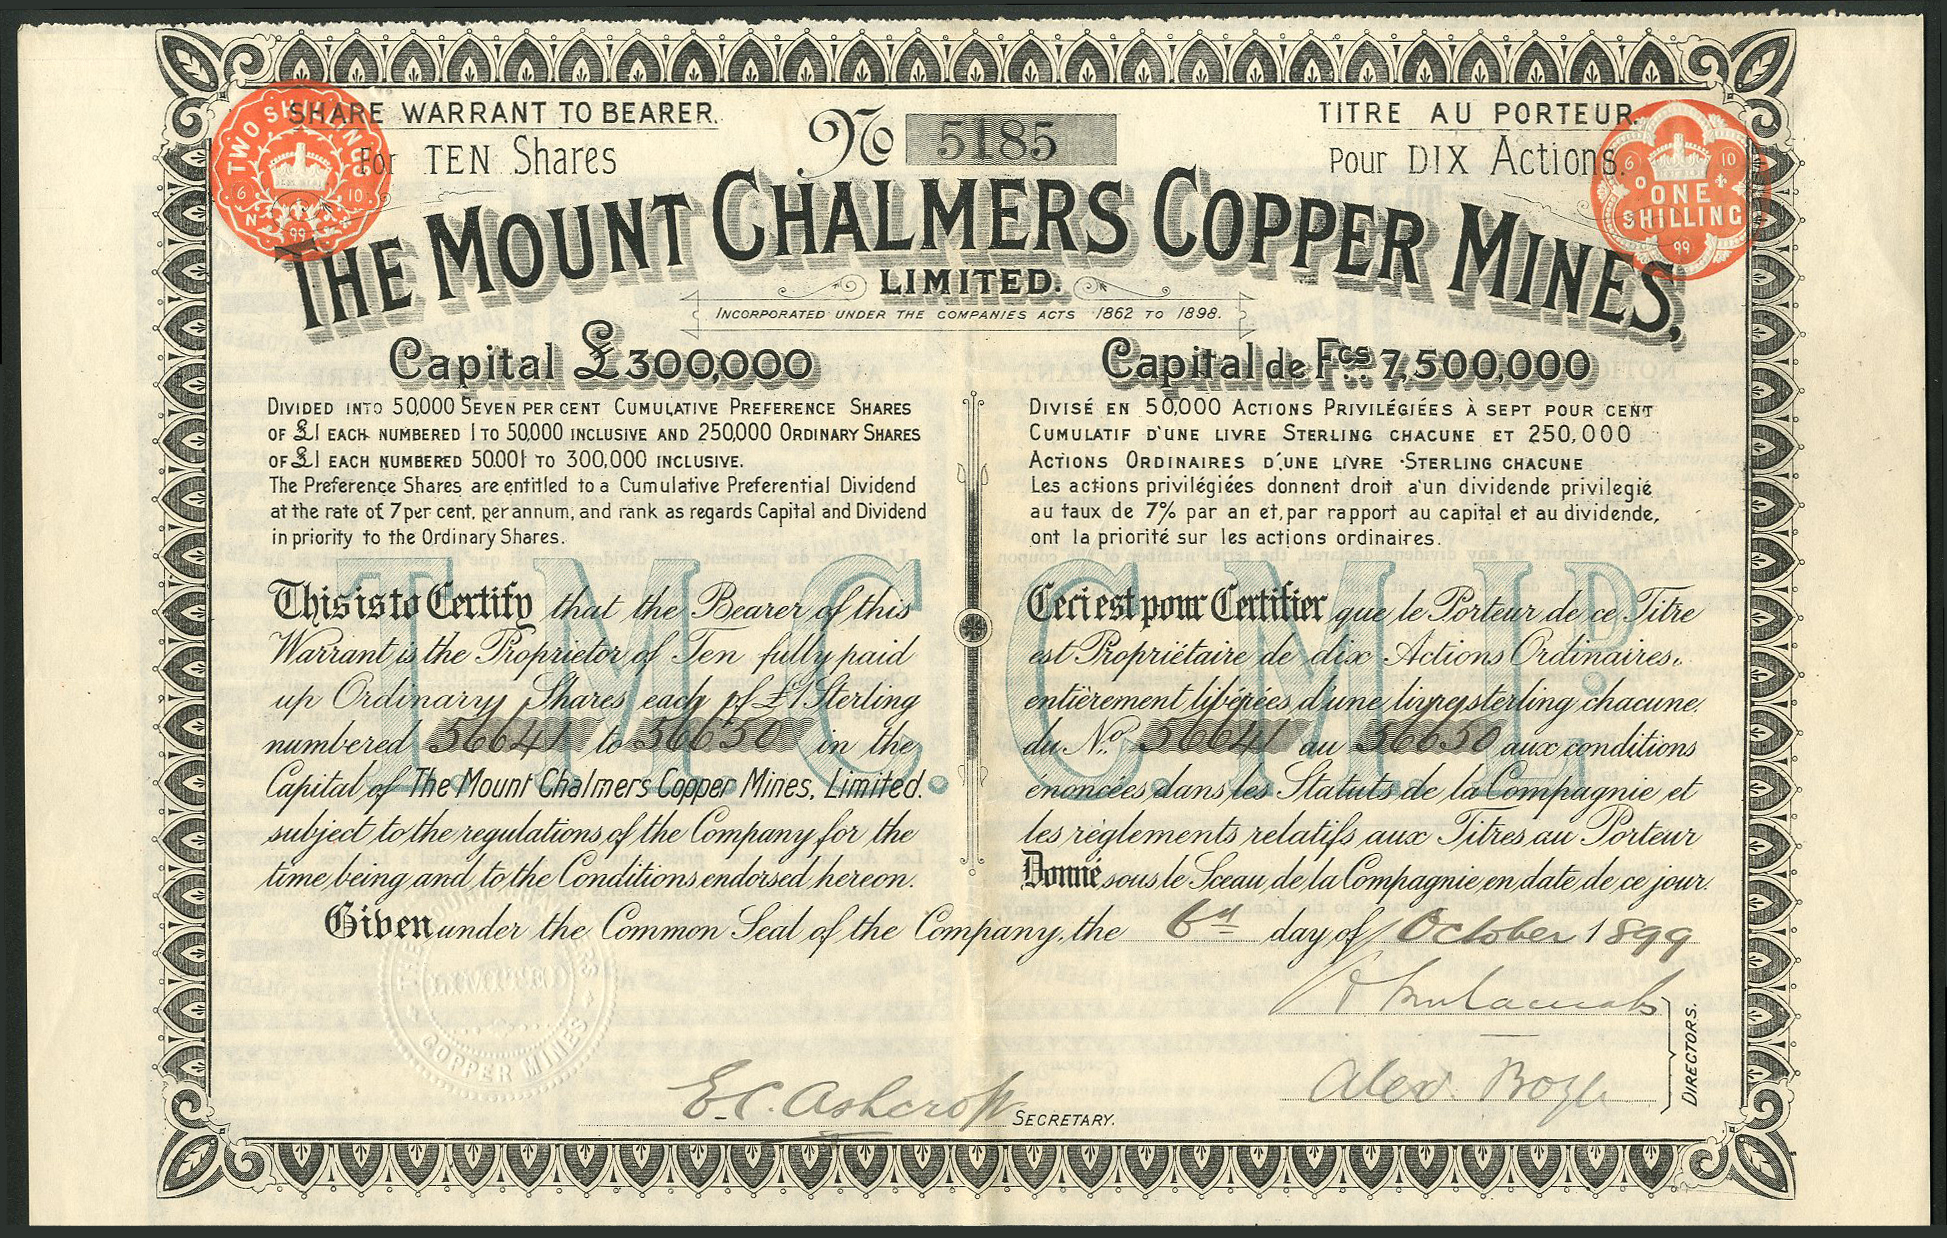 SHARE WARRANT TO BEARER.
For TEN Shares
No 5185
TITRE AU PORTEUR.
Pour DIX Actions.
TWO SHILLINGS
6 10
N
99
6 10
ONE
SHILLING
99
THE MOUNT CHALMERS COPPER MINES,
LIMITED.
INCORPORATED UNDER THE COMPANIES ACTS 1862 TO 1898.
Capital £300,000
DIVIDED INTO 50,000 SEVEN PER CENT CUMULATIVE PREFERENCE SHARES
OF £1 EACH NUMBERED 1 TO 50,000 INCLUSIVE AND 250,000 ORDINARY SHARES
OF £1 EACH NUMBERED 50.001 TO 300,000 INCLUSIVE.
The Preference Shares are entitled to a Cumulative Preferential Dividend
at the rate of 7 per cent, per annum, and rank as regards Capital and Dividend
in priority to the Ordinary Shares.
Capital de Fcs 7,500,000
DIVISÉ EN 50,000 ACTIONS PRIVILÉGIÉES À SEPT POUR CENT
CUMULATIF D'UNE LIVRE STERLING CHACUNE ET 250,000
ACTIONS ORDINAIRES D'UNE LIVRE STERLING CHACUNE
Les actions privilégiées donnent droit a'un dividende privilegié
au taux de 7% par an et, par rapport au capital et au dividende,
ont la priorité sur les actions ordinaires.
T.M.C.C.M.LD.
This is to Certify that the Bearer of this
Warrant is the Proprietor of Ten fully paid
up Ordinary Shares each of £1 Sterling
numbered 56641 to 56650 in the
Capital of The Mount Chalmers Copper Mines, Limited.
subject to the regulations of the Company for the
time being and to the Conditions endorsed hereon.
Ceci est pour Certifier que le Porteur de ce Titre
est Propriétaire de dix Actions Ordinaires,
entièrement libérées d'une livre sterling chacune.
du No. 56641 au 56650 aux conditions
énoncées dans les Statuts de la Compagnie et
les règlements relatifs aux Titres au Porteur
Donné sous le Sceau de la Compagnie en date de ce jour.
Given under the Common Seal of the Company, the 6th day of October 1899
LIMITED
COPPER MINES
E.C. Ashcroft
SECRETARY.
Alex. Boyle
DIRECTORS.